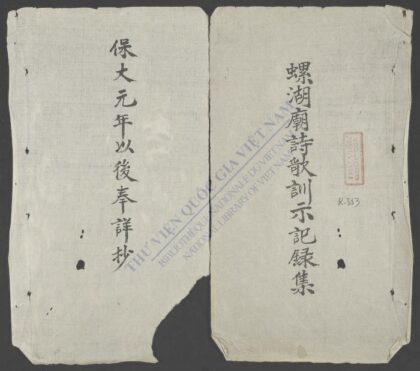 螺湖廟詩歌訓示記録集
保大元年以後奉詳抄
R.553
THƯ VIỆN QUỐC GIA VIỆT NAM
BIBLIOTHÈQUE NATIONALE DU VIETNAM
NATIONAL LIBRARY OF VIETNAM